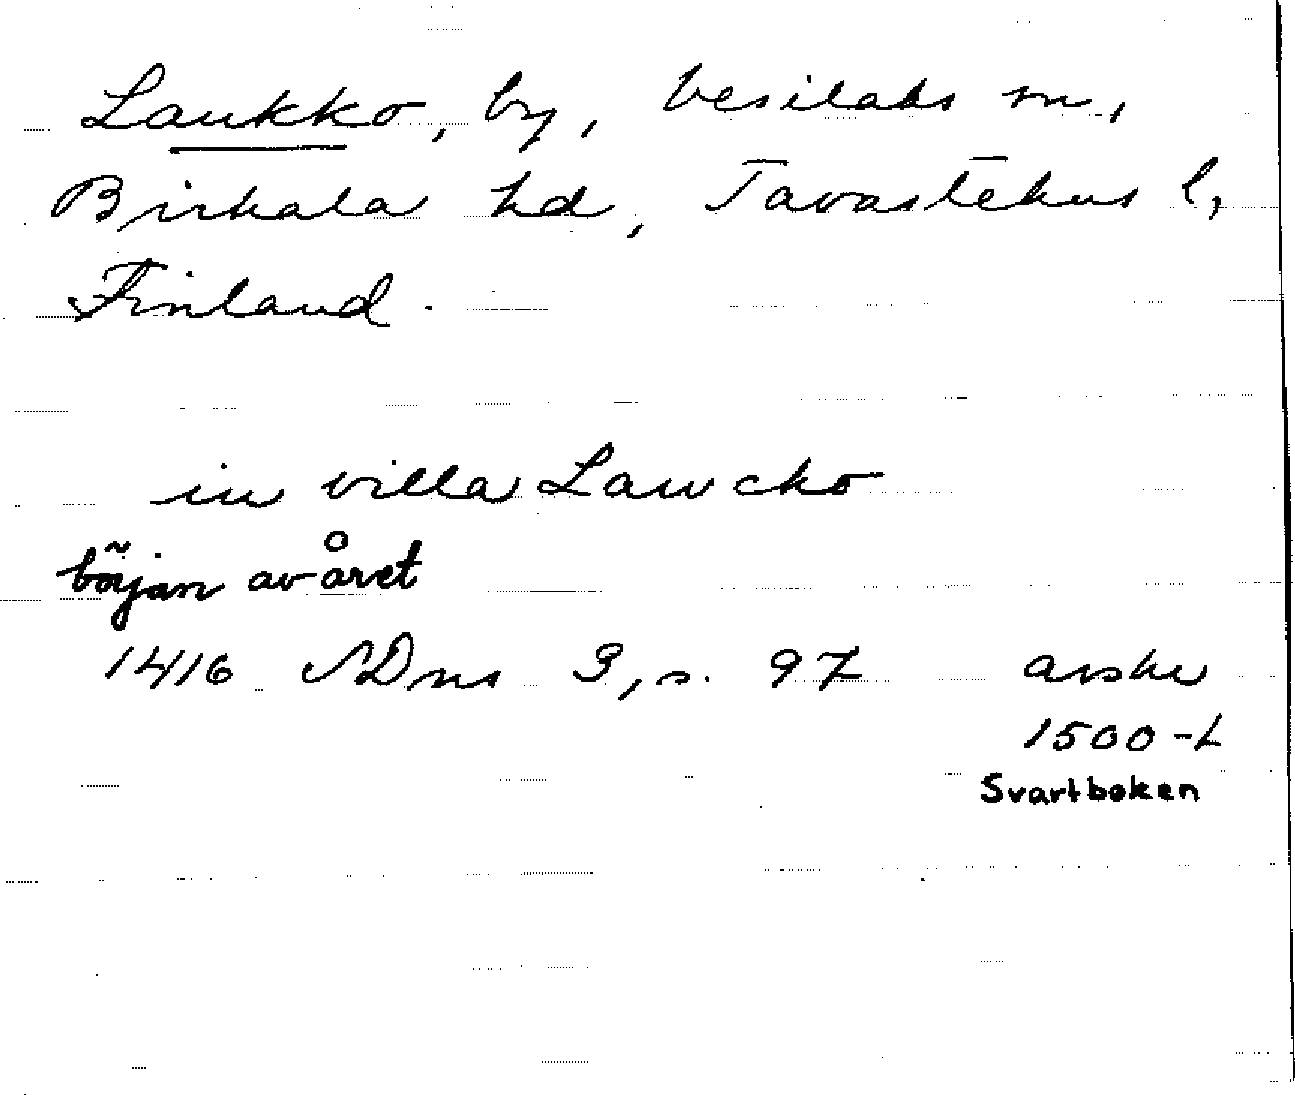 Laukko, by, Vesilaks sn,
Birkala hd, Tavastehus l,
Finland.
in villa Lawcko
början av året
1416 SDns 3, s. 97 avskr
1500-t
Svartboken